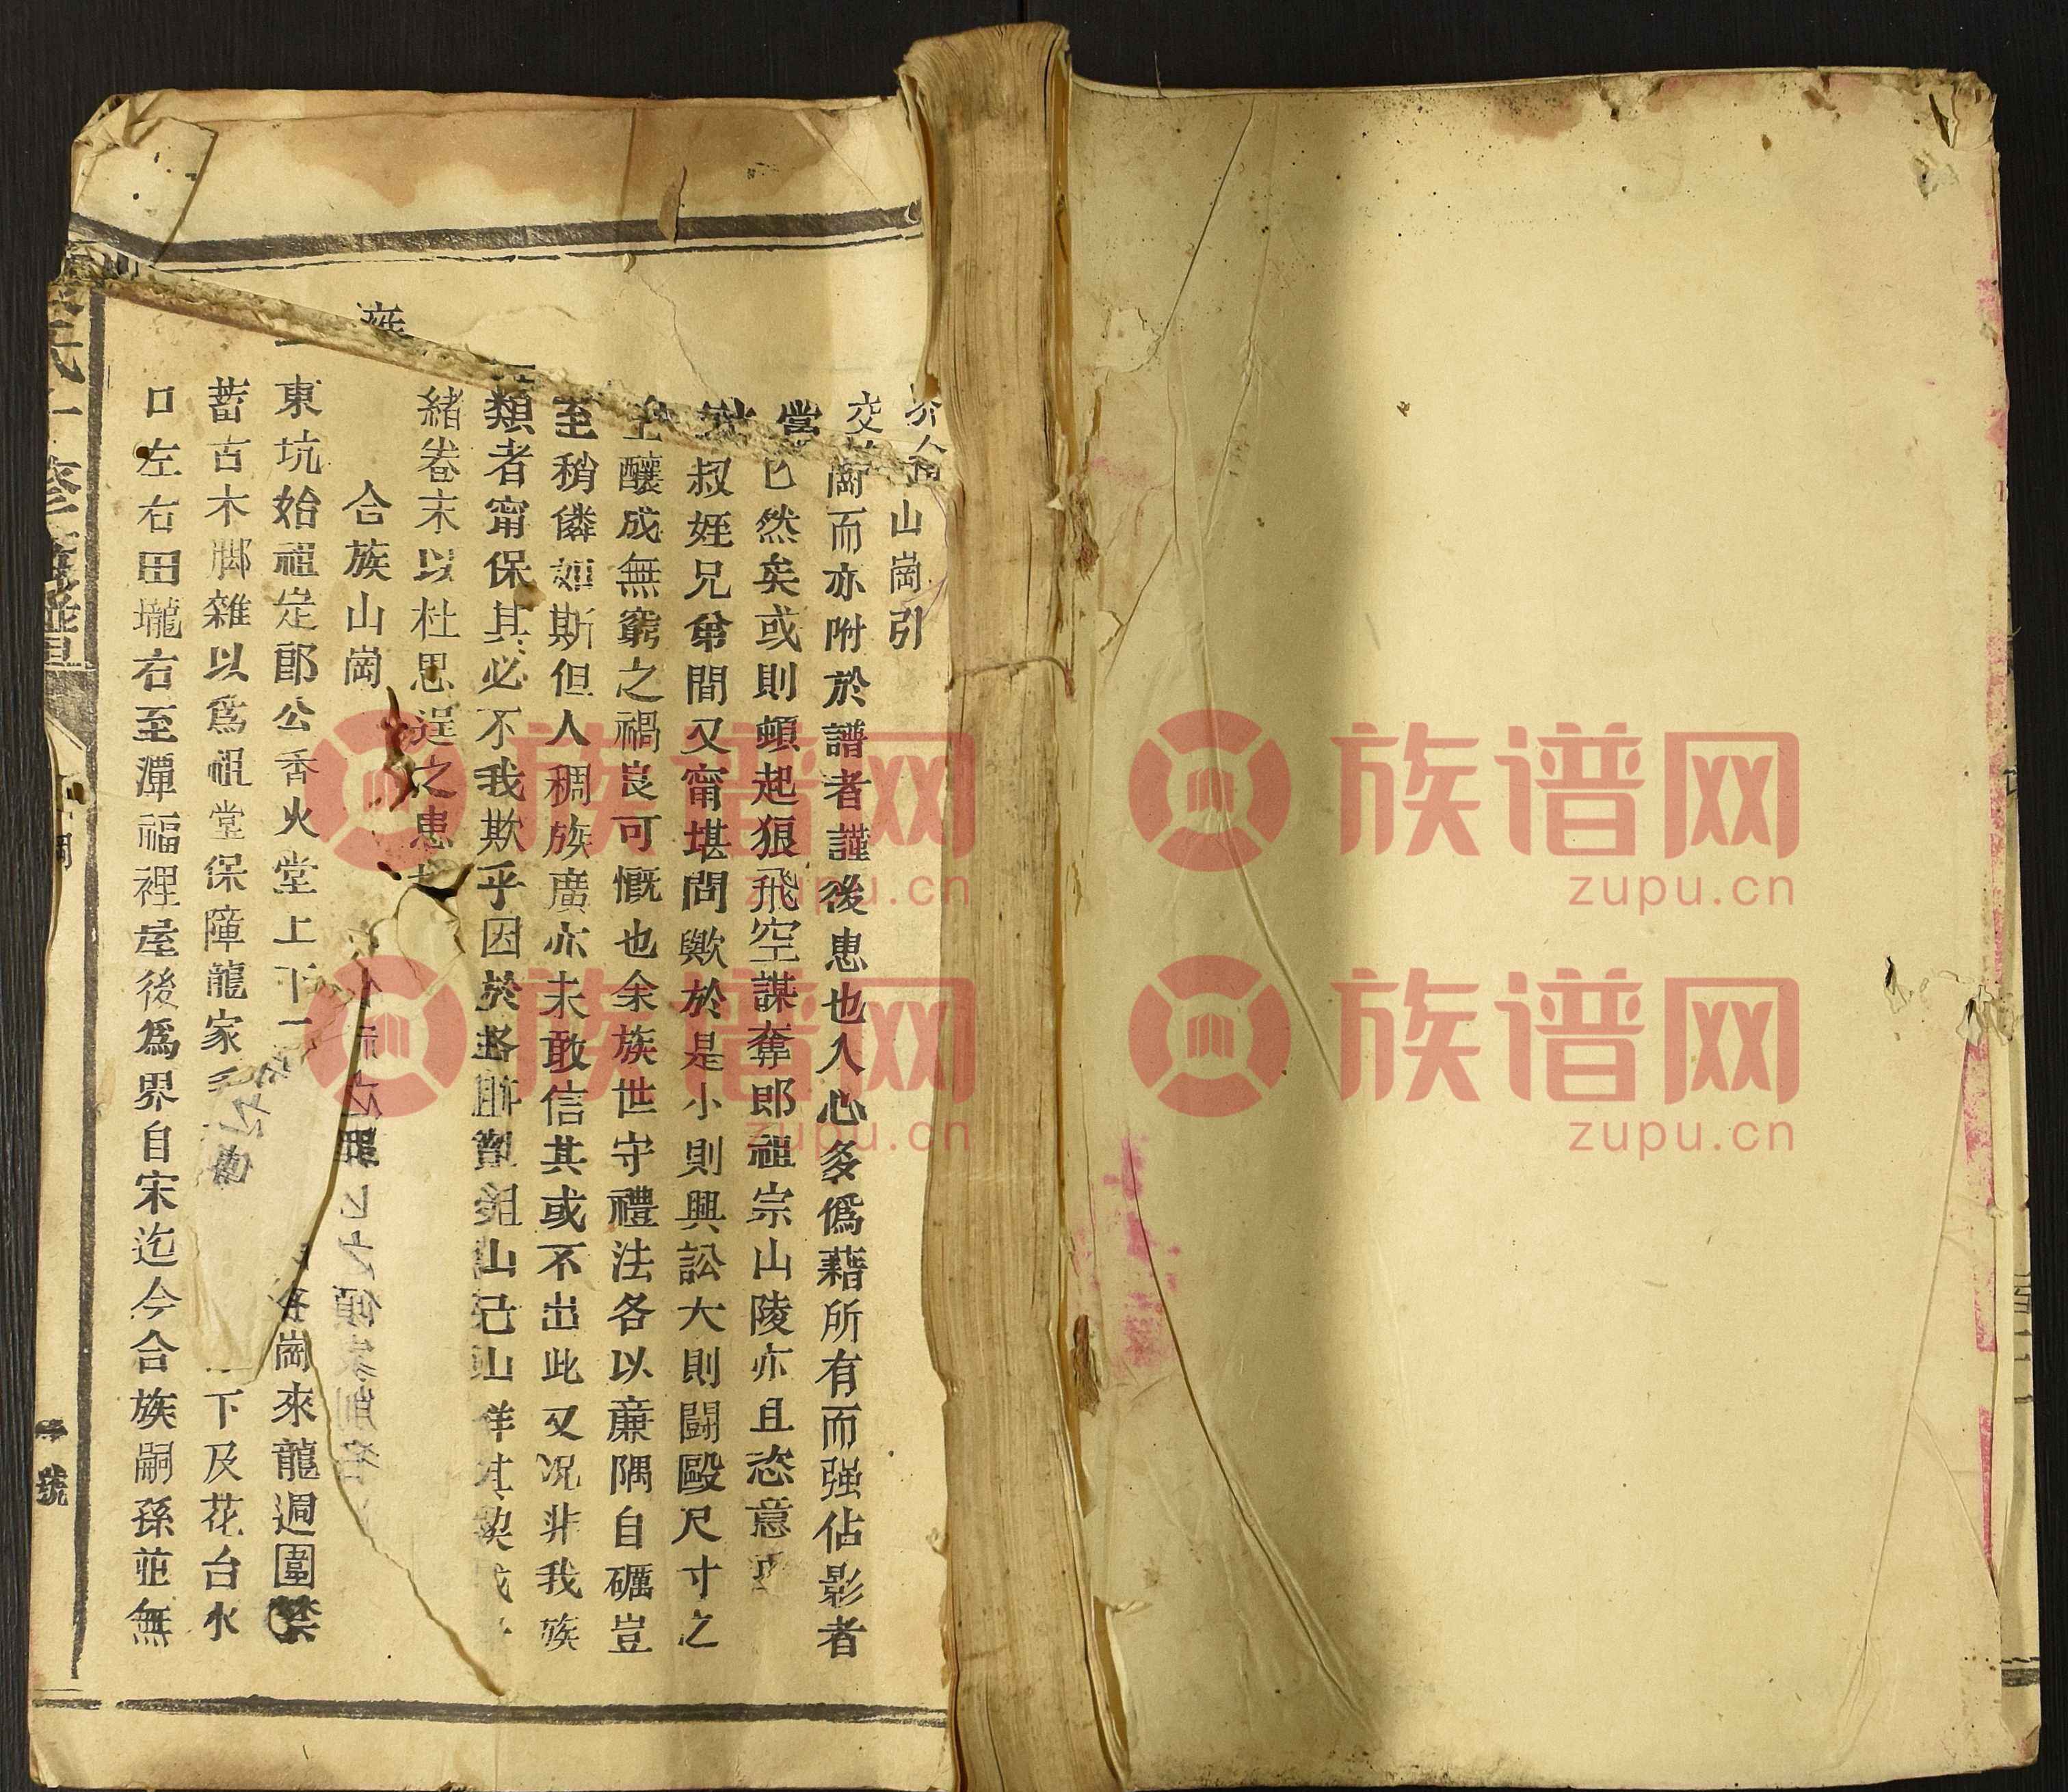 山崗引
而亦附於譜者謹後患也人心多僞藉所有而强佔影者
已然矣或則頓起狠飛空謀奪郎祖宗山陵亦且恣意
叔姪兄弟間又甯堪問歟於是小則興訟大則鬪毆尺寸之
釀成無窮之禍良可慨也余族世守禮法各以廉隅自礪豈
至稍憐如斯但人稠族廣亦未敢信其或不出此又况非我族
類者甯保其必不我欺乎因於各
祖山己山
緒卷末以杜思逞之患
合族山崗
東坑始祖定郎公香火堂上下一
崗來龍週圍禁
蓄古木腳雜以爲祖堂保障龍家
下及花台水
口左右田壠右至潭福裡屋後爲界自宋迄今合族嗣孫並無
號
族谱网
zupu.cn
族谱网
zupu.cn
族谱网
zupu.cn
族谱网
zupu.cn